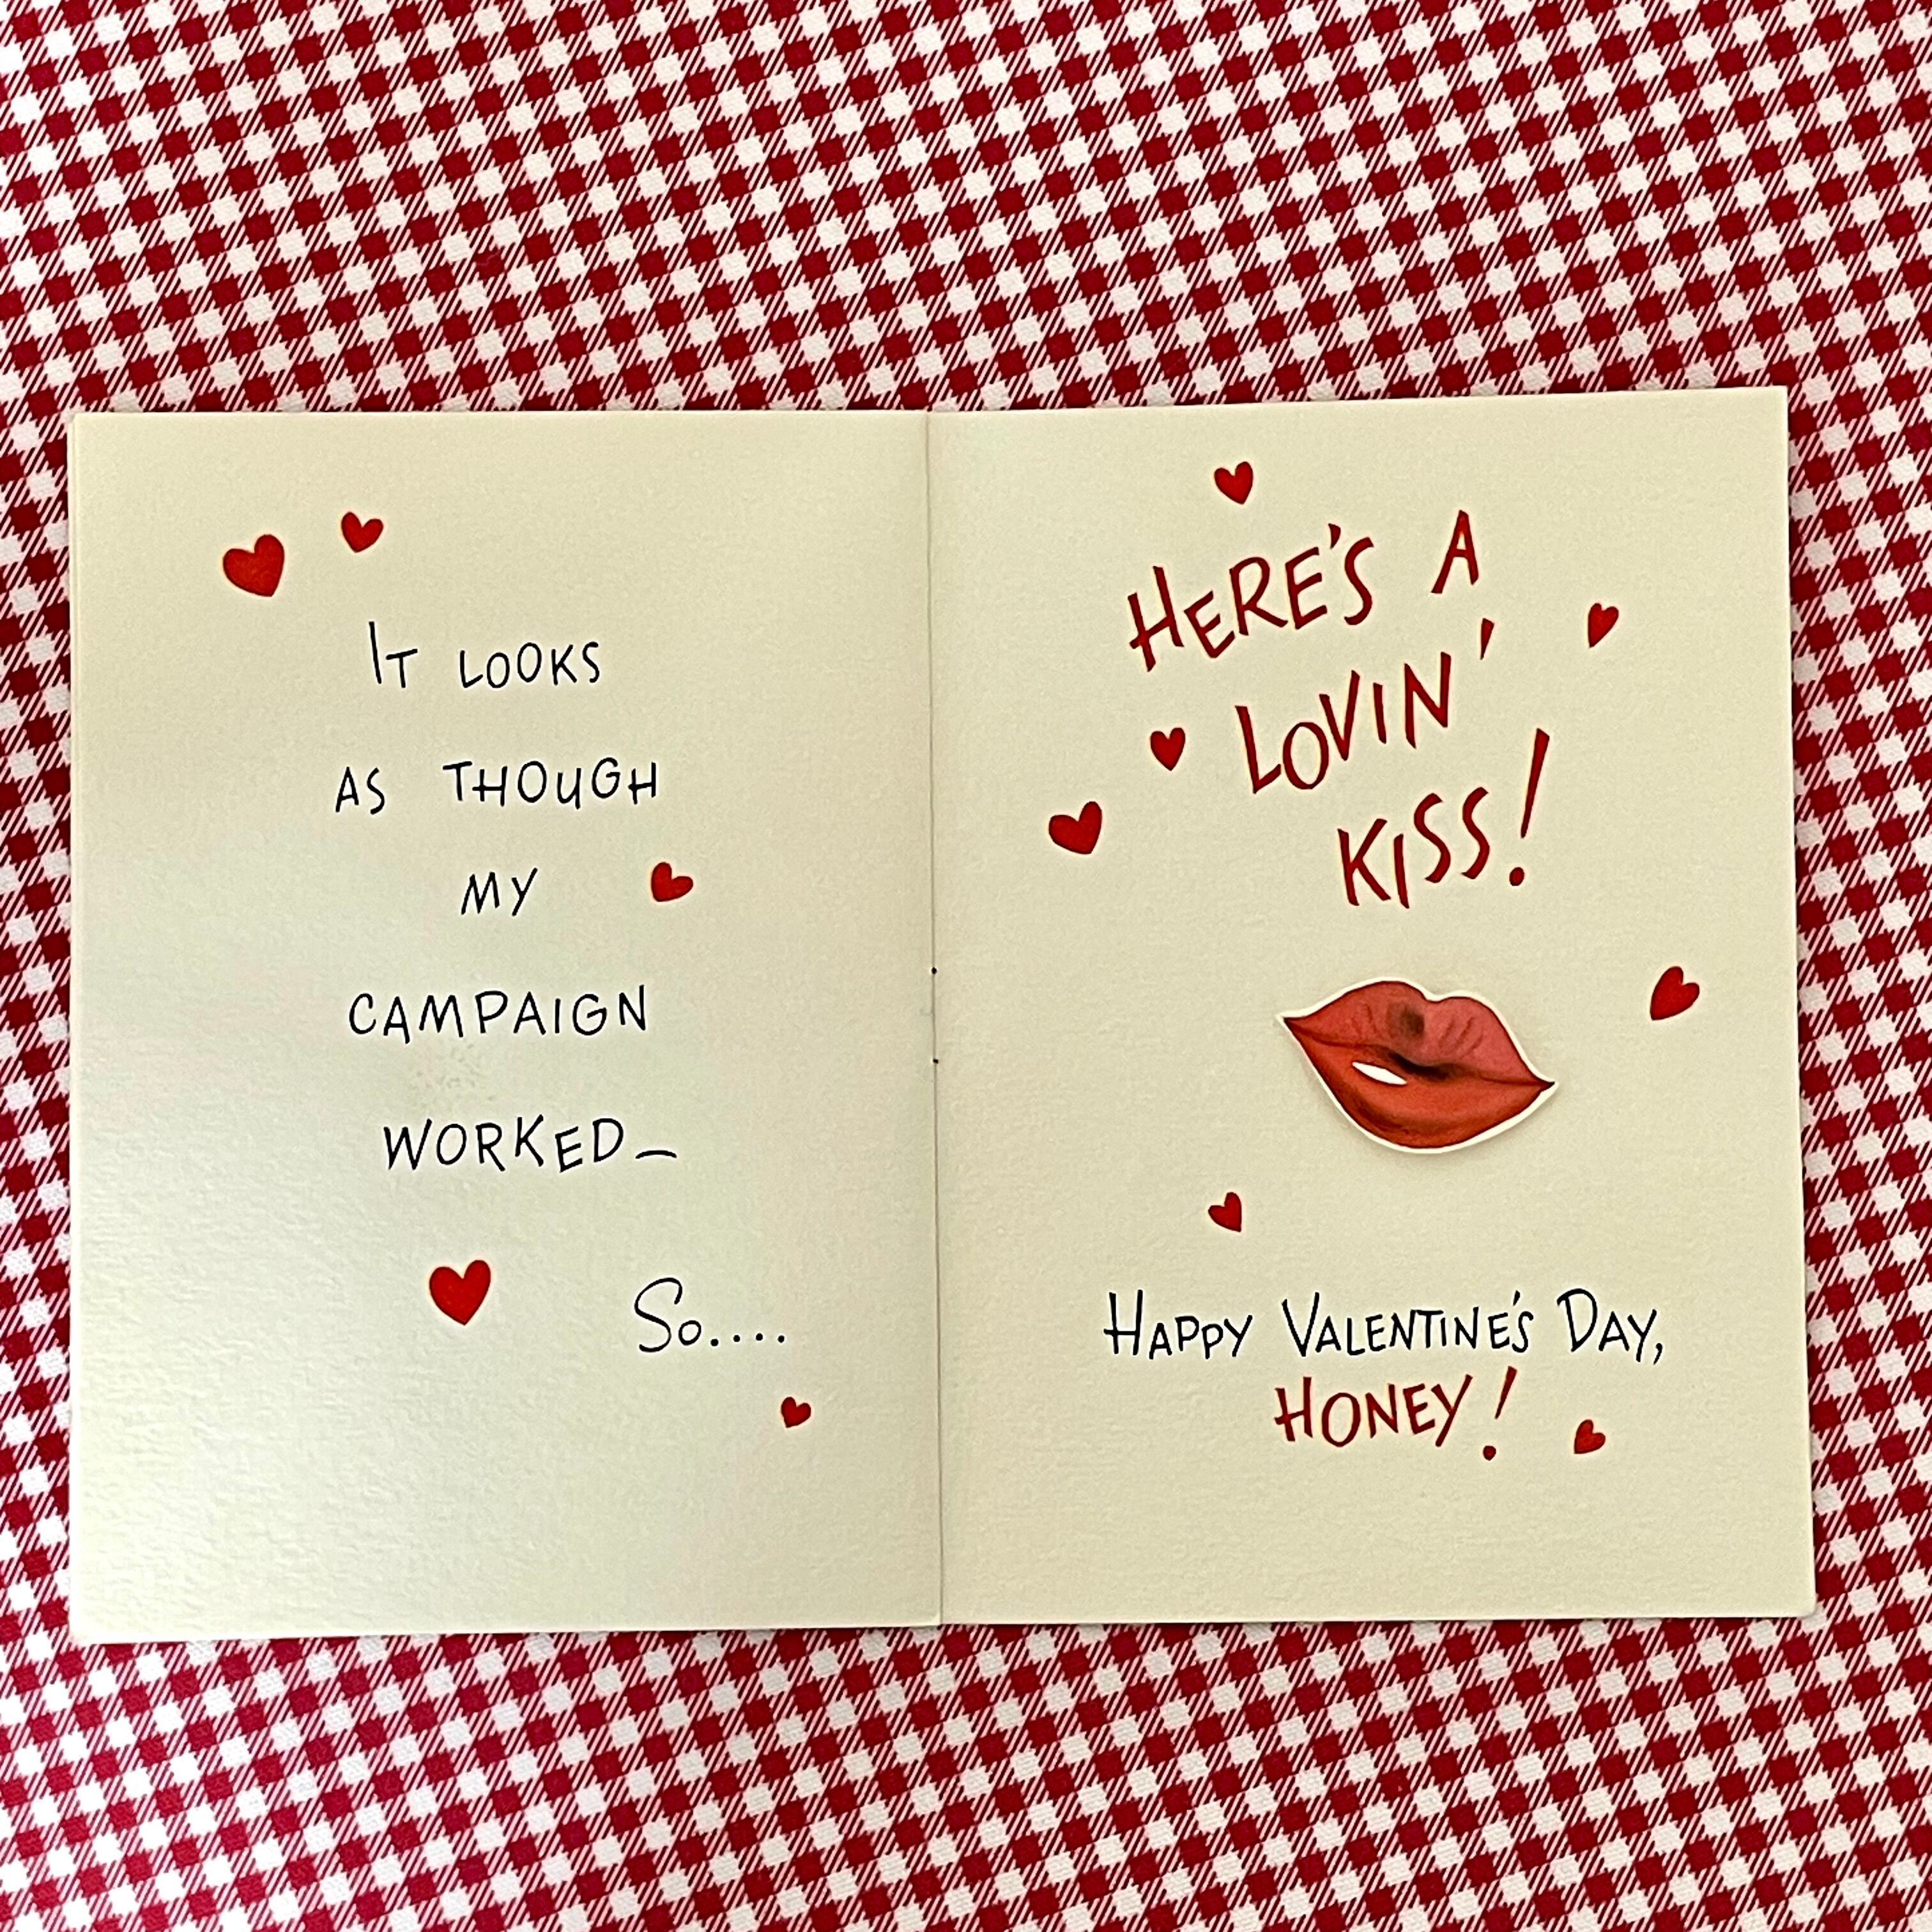 It looks
as though
my
campaign
worked—
So....
Here's a
lovin'
kiss!
Happy Valentine's Day,
Honey!